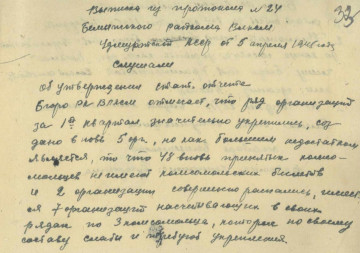 Выписка из протокола № 24
райкома ВЛКСМ
АССР от 5 апреля 1946 года
Слушали
Об утверждении стат. отчета
Бюро РК ВЛКСМ отмечает, что ряд организаций
за 1й квартал значительно укрепились, соз
дано вновь 5 орг., но как большим недостатком
является, то что 48 вновь принятых комсо-
мольцев не имеют комсомольских билетов
и 2 организации совершенно распались, имеет
ся 7 организаций насчитывающих в своих
рядах по 3 комсомольца, которые по своему
составу слабы и требуют укрепления.